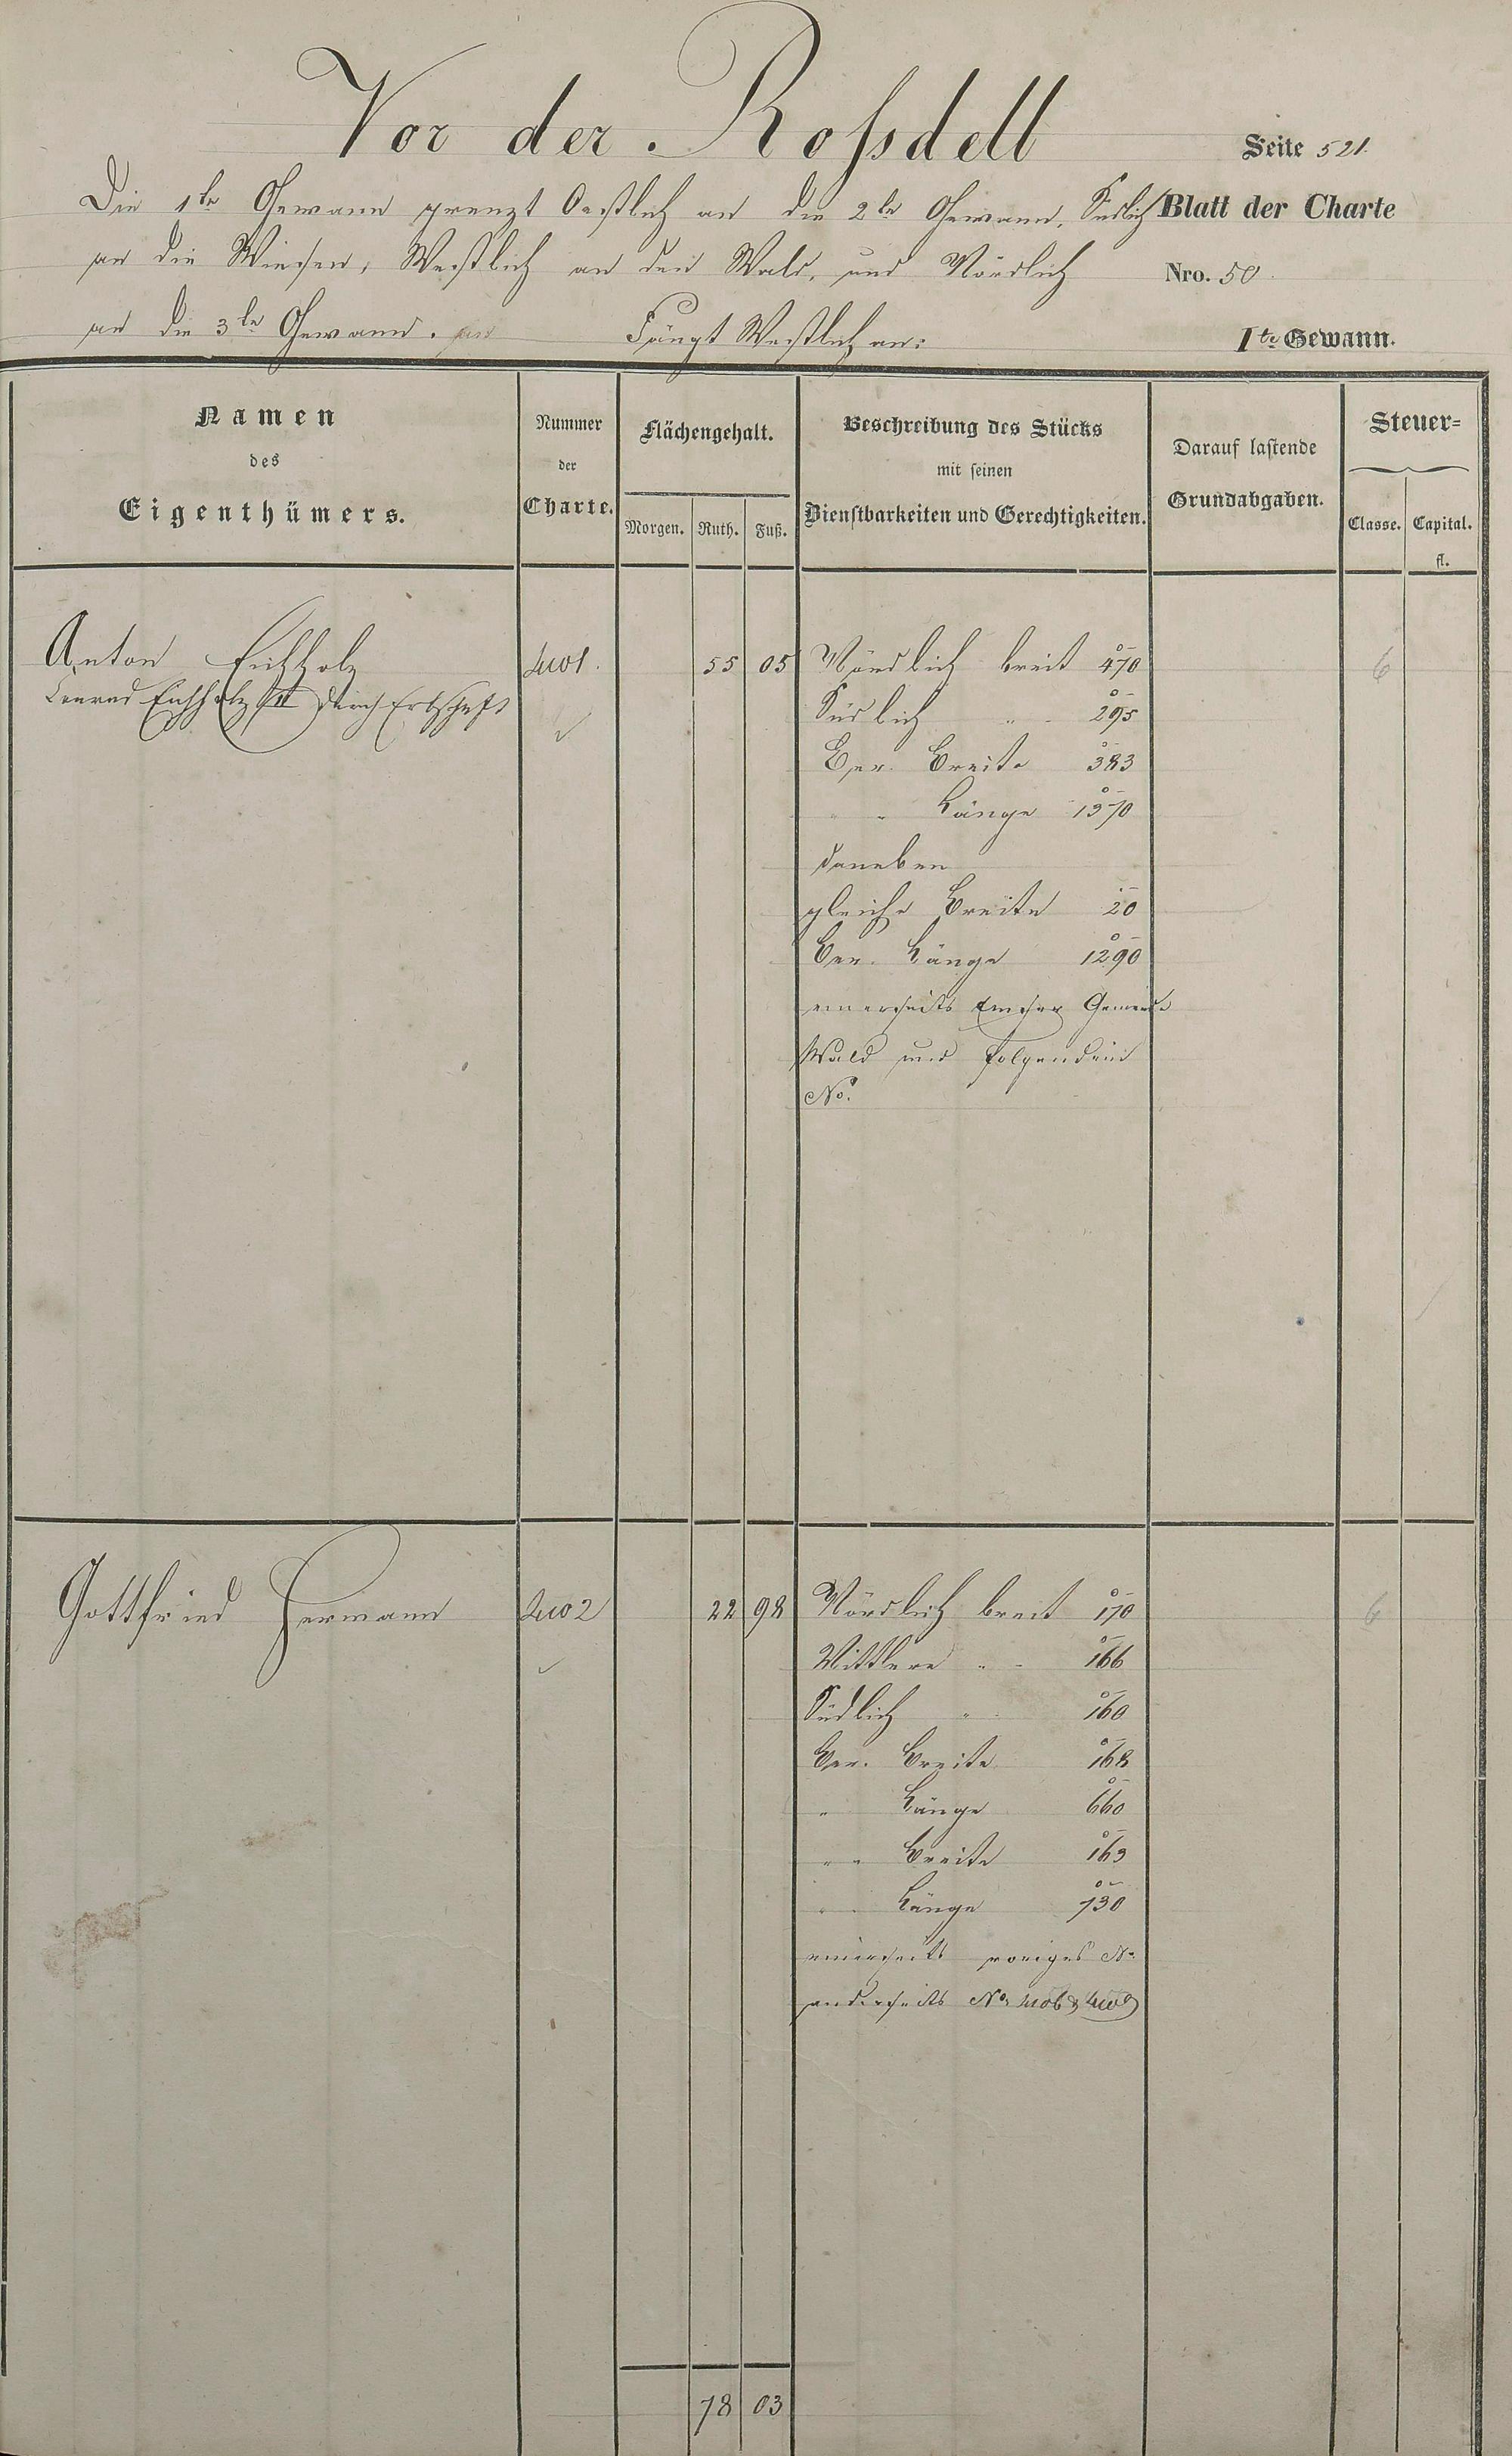 Vor der Roßdell
Seite 521.
Die 1te Gewann grenzt Oestlich an die 2te Gewann, Südlich
Blatt der Charte
an die Wiesen, Westlich an den Wald, und Nördlich
Nro. 50.
an die 3te Gewann.
Fängt Westlich an:
1te Gewann.
Namen
des
Eigenthümers.
Nummer
der
Charte.
Flächengehalt.
Morgen. Ruth. Fuß.
Beschreibung des Stücks
mit seinen
Dienstbarkeiten und Gerechtigkeiten.
Darauf lastende
Grundabgaben.
Steuer=
Classe. Capital.
fl.
Anton Eichholz 4401. 55 05 Nördlich breit 470 6
Conrad Eichholz II durch Erbschaft
Südlich " 295
Ger. Breite 383
" " Länge 1370
daneben
gleiche Breite 20
Ger. Länge 1290
einerseits Emser Gemeinde
Wald und folgendem
No.
Gottfried Hermann 4402 22 98 Nördlich breit 170 6
Mittlere " " 166
Südlich " 160
Ger. Breite 168
" Länge 660
" " Breite 163
" " Länge 730
einerseits voriges No
anderseits No 4406 &
78 03